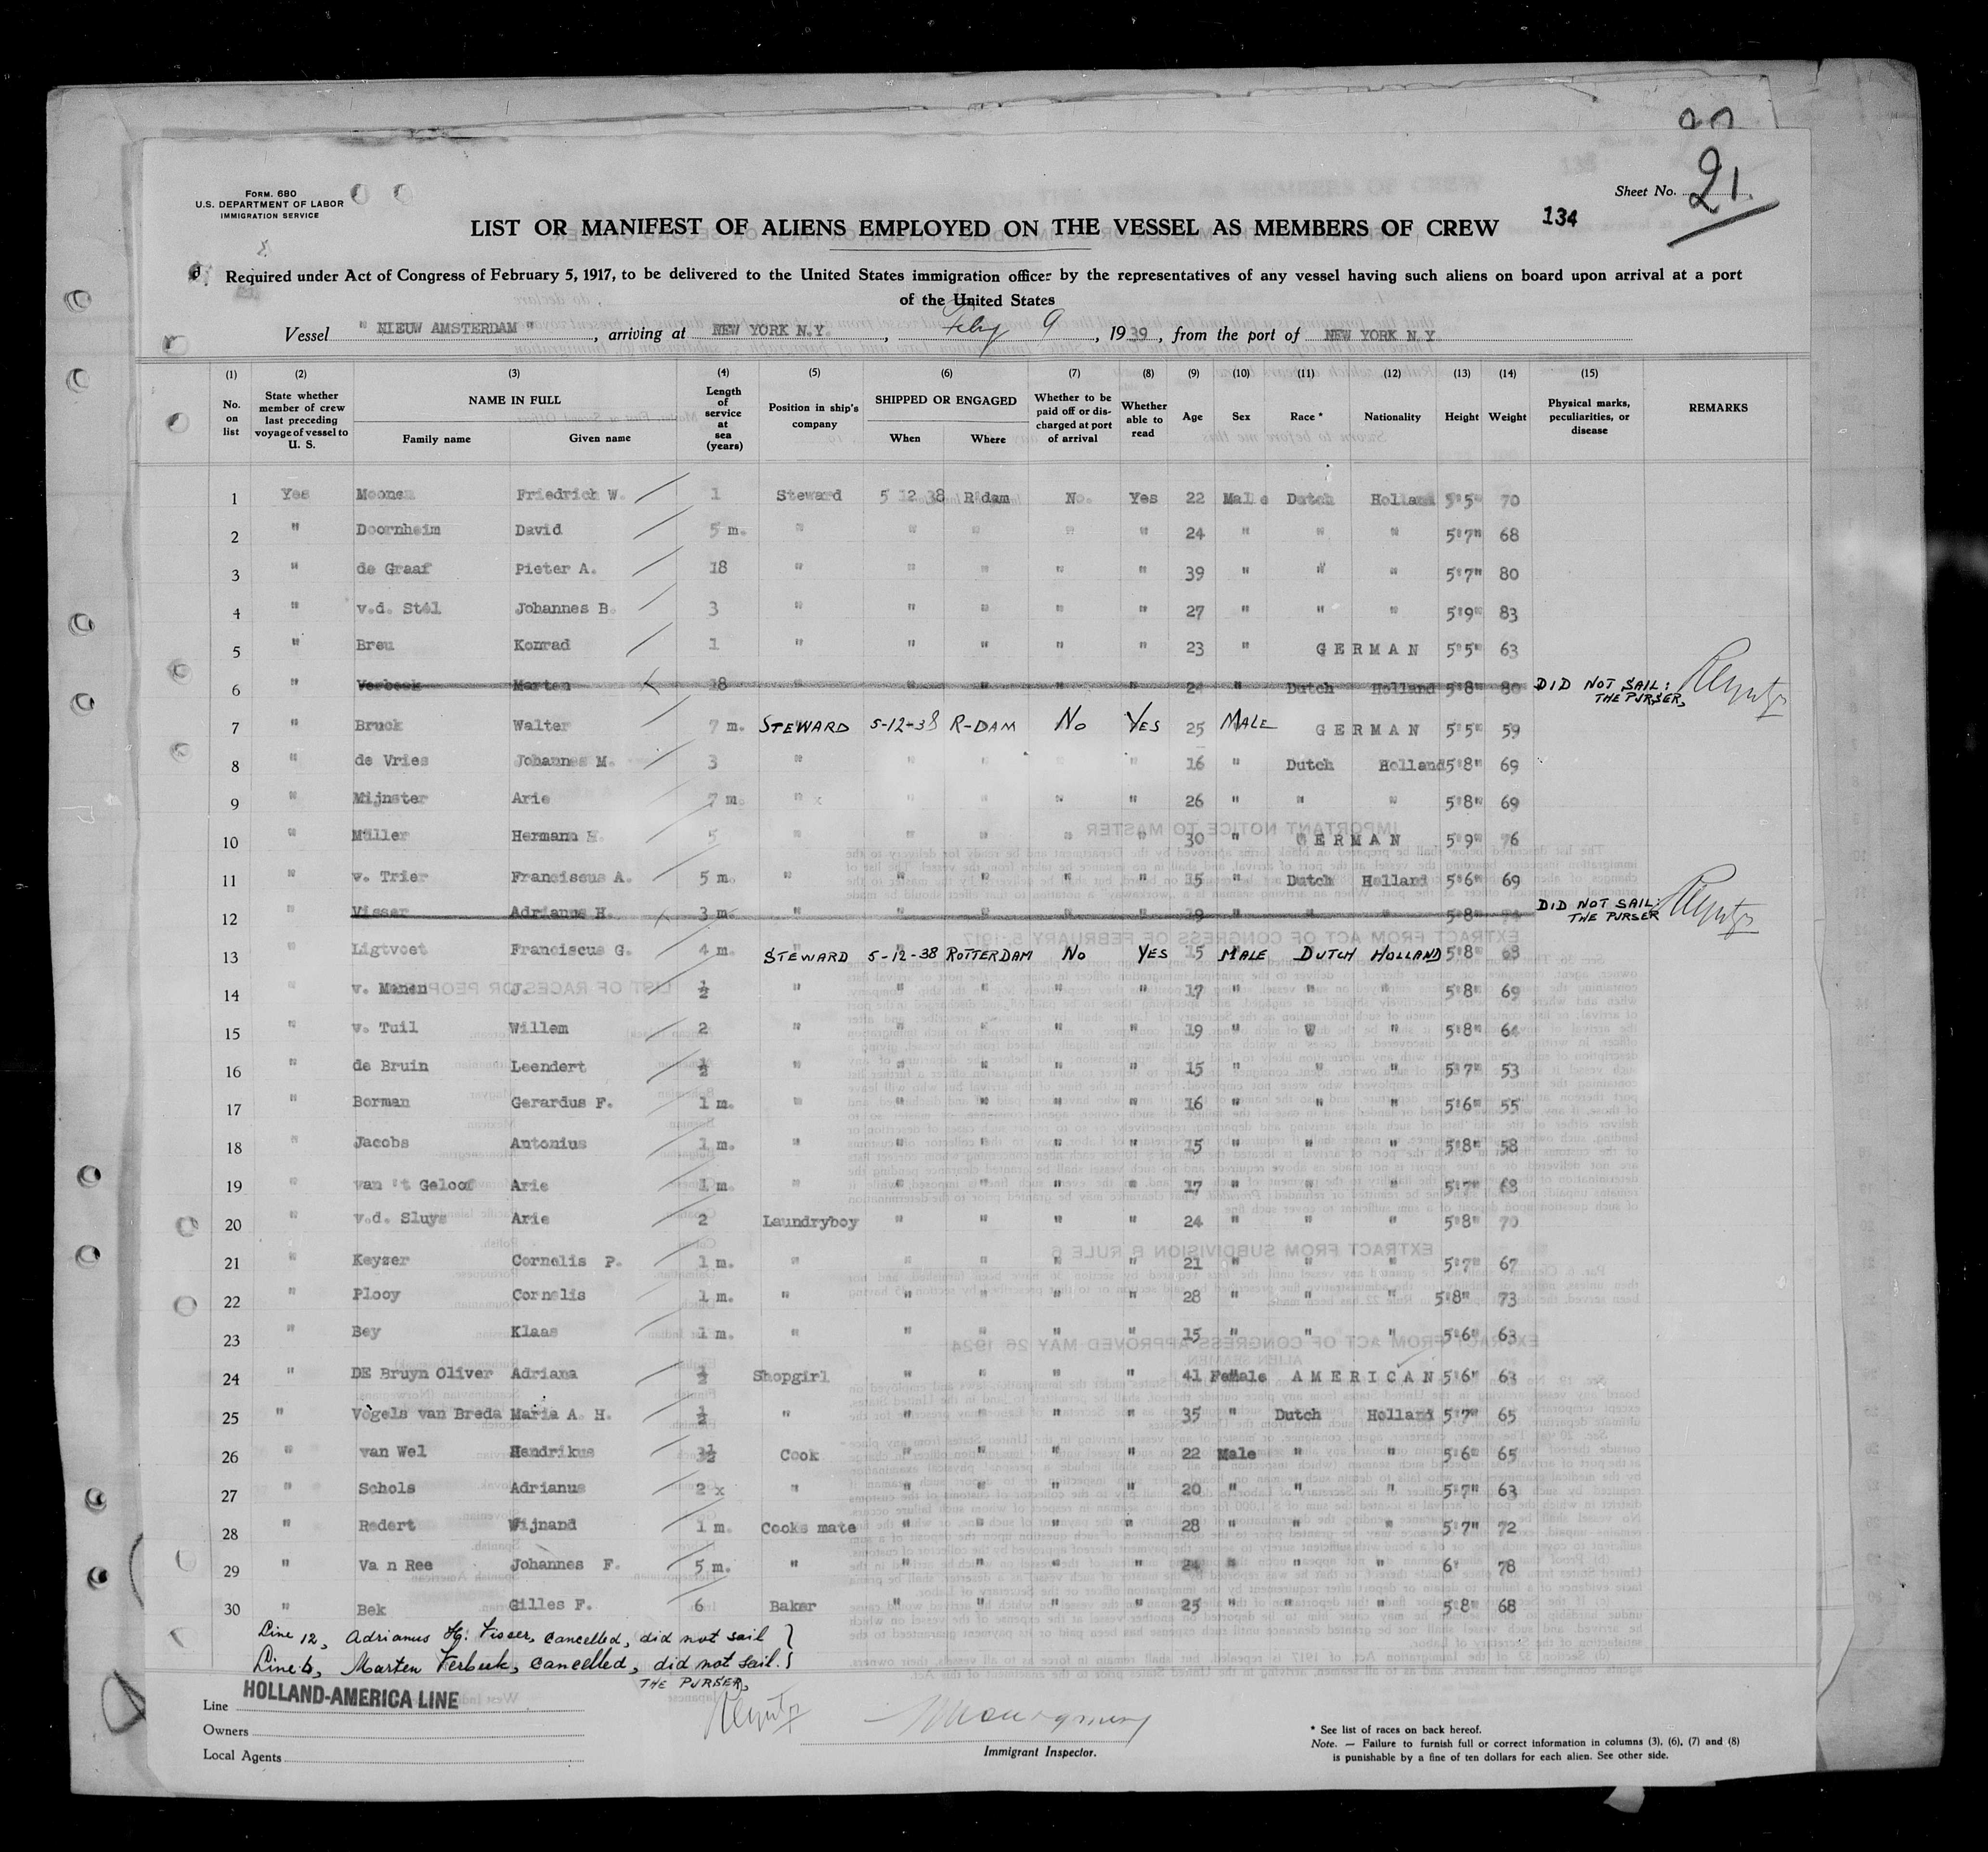 Form. 680
U.S. DEPARTMENT OF LABOR
IMMIGRATION SERVICE
Sheet No. 21.
134
LIST OR MANIFEST OF ALIENS EMPLOYED ON THE VESSEL AS MEMBERS OF CREW
Required under Act of Congress of February 5, 1917, to be delivered to the United States immigration officer by the representatives of any vessel having such aliens on board upon arrival at a port
of the United States
Vessel " NIEUW AMSTERDAM ", arriving at NEW YORK N.Y., Feby 9, 1939, from the port of NEW YORK N.Y
(1) (2) (3) (4) (5) (6) (7) (8) (9) (10) (11) (12) (13) (14) (15)
No. on list | State whether member of crew last preceding voyage of vessel to U. S. | NAME IN FULL Family name Given name | Length of service at sea (years) | Position in ship's company | SHIPPED OR ENGAGED When Where | Whether to be paid off or discharged at port of arrival | Whether able to read | Age | Sex | Race * | Nationality | Height | Weight | Physical marks, peculiarities, or disease | REMARKS
1 Yes Moonen Friedrich W. 1 Steward 5 12 38 R'dam No. Yes 22 Male Dutch Holland 5'5" 70
2 " Doornheim David 5 m. " " " " " 24 " " " 5'7" 68
3 " de Graaf Pieter A. 18 " " " " " 39 " " " 5'7" 80
4 " v.d. Stél Johannes B. 3 " " " " " 27 " " " 5'9" 83
5 " Breu Konrad 1 " " " " " 23 " GERMAN 5'5" 63
6 " Verbeek Marten 18 " " " " " 24 " Dutch Holland 5'8" 80 DID NOT SAIL: THE PURSER,
7 " Bruck Walter 7 m. STEWARD 5-12-38 R-DAM No YES 25 MALE GERMAN 5'5" 59
8 " de Vries Johannes M. 3 " " " " " 16 " Dutch Holland 5'8" 69
9 " Mijnster Arie 7 m. " x " " " " 26 " " " 5'8" 69
10 " Müller Hermann H. 5 " " " " " 30 " GERMAN 5'9" 76
11 " v. Trier Franciscus A. 5 m. " " " " " 15 " Dutch Holland 5'6" 69
12 " Visser Adrianus H. 3 m. " " " " " 19 " " " 5'8" DID NOT SAIL: THE PURSER
13 " Ligtvoet Franciscus G. 4 m. STEWARD 5-12-38 ROTTERDAM No YES 15 MALE DUTCH HOLLAND 5'8" 68
14 " v. Manen J. ½ " " " " " 17 " " " 5'8" 69
15 " v. Tuil Willem 2 " " " " " 19 " W " 5'8" 64
16 " de Bruin Leendert ½ " " " " " 15 " " " 5'7" 53
17 " Borman Gerardus F. 1 m. " " " " " 16 " " " 5'6" 55
18 " Jacobs Antonius 1 m. " " " " " 15 " " " 5'8" 58
19 " van 't Geloof Arie 1 m. " " " " " 17 " " " 5'7" 68
20 " v.d. Sluys Arie 2 Laundryboy " " " " 24 " " " 5'8" 70
21 " Keyzer Cornelis P. 1 m. " " " " " 21 " " " 5'7" 67
22 " Plooy Cornelis 1 m. " " " " " 28 " " " 5'8" 73
23 " Bey Klaas 1 m. " " " " " 15 " " " 5'6" 63
24 " DE Bruyn Oliver Adriana ½ Shopgirl " " " " 41 Female AMERICAN 5'6" 63
25 " Vogels van Breda Maria A. H. ½ " " " " " 35 " Dutch Holland 5'7" 65
26 " van Wel Hendrikus 3½ Cook " " " " 22 Male " " 5'6" 65
27 " Schols Adrianus 2 x " " " " " 20 " " " 5'7" 63
28 " Redert Wijnand 1 m. Cooks mate " " " " 28 " " " 5'7" 72
29 " Va n Ree Johannes F. 5 m. " " " " " 24 " " " 6' 78
30 " Bek Gilles F. 6 Baker " " " " 25 " " " 5'8" 68
Line 12, Adrianus H. Visser, cancelled, did not sail }
Line 6, Marten Verbeek, cancelled, did not sail. }
THE PURSER,
Line HOLLAND-AMERICA LINE
Owners
Local Agents
Immigrant Inspector.
* See list of races on back hereof.
Note. — Failure to furnish full or correct information in columns (3), (6), (7) and (8)
is punishable by a fine of ten dollars for each alien. See other side.